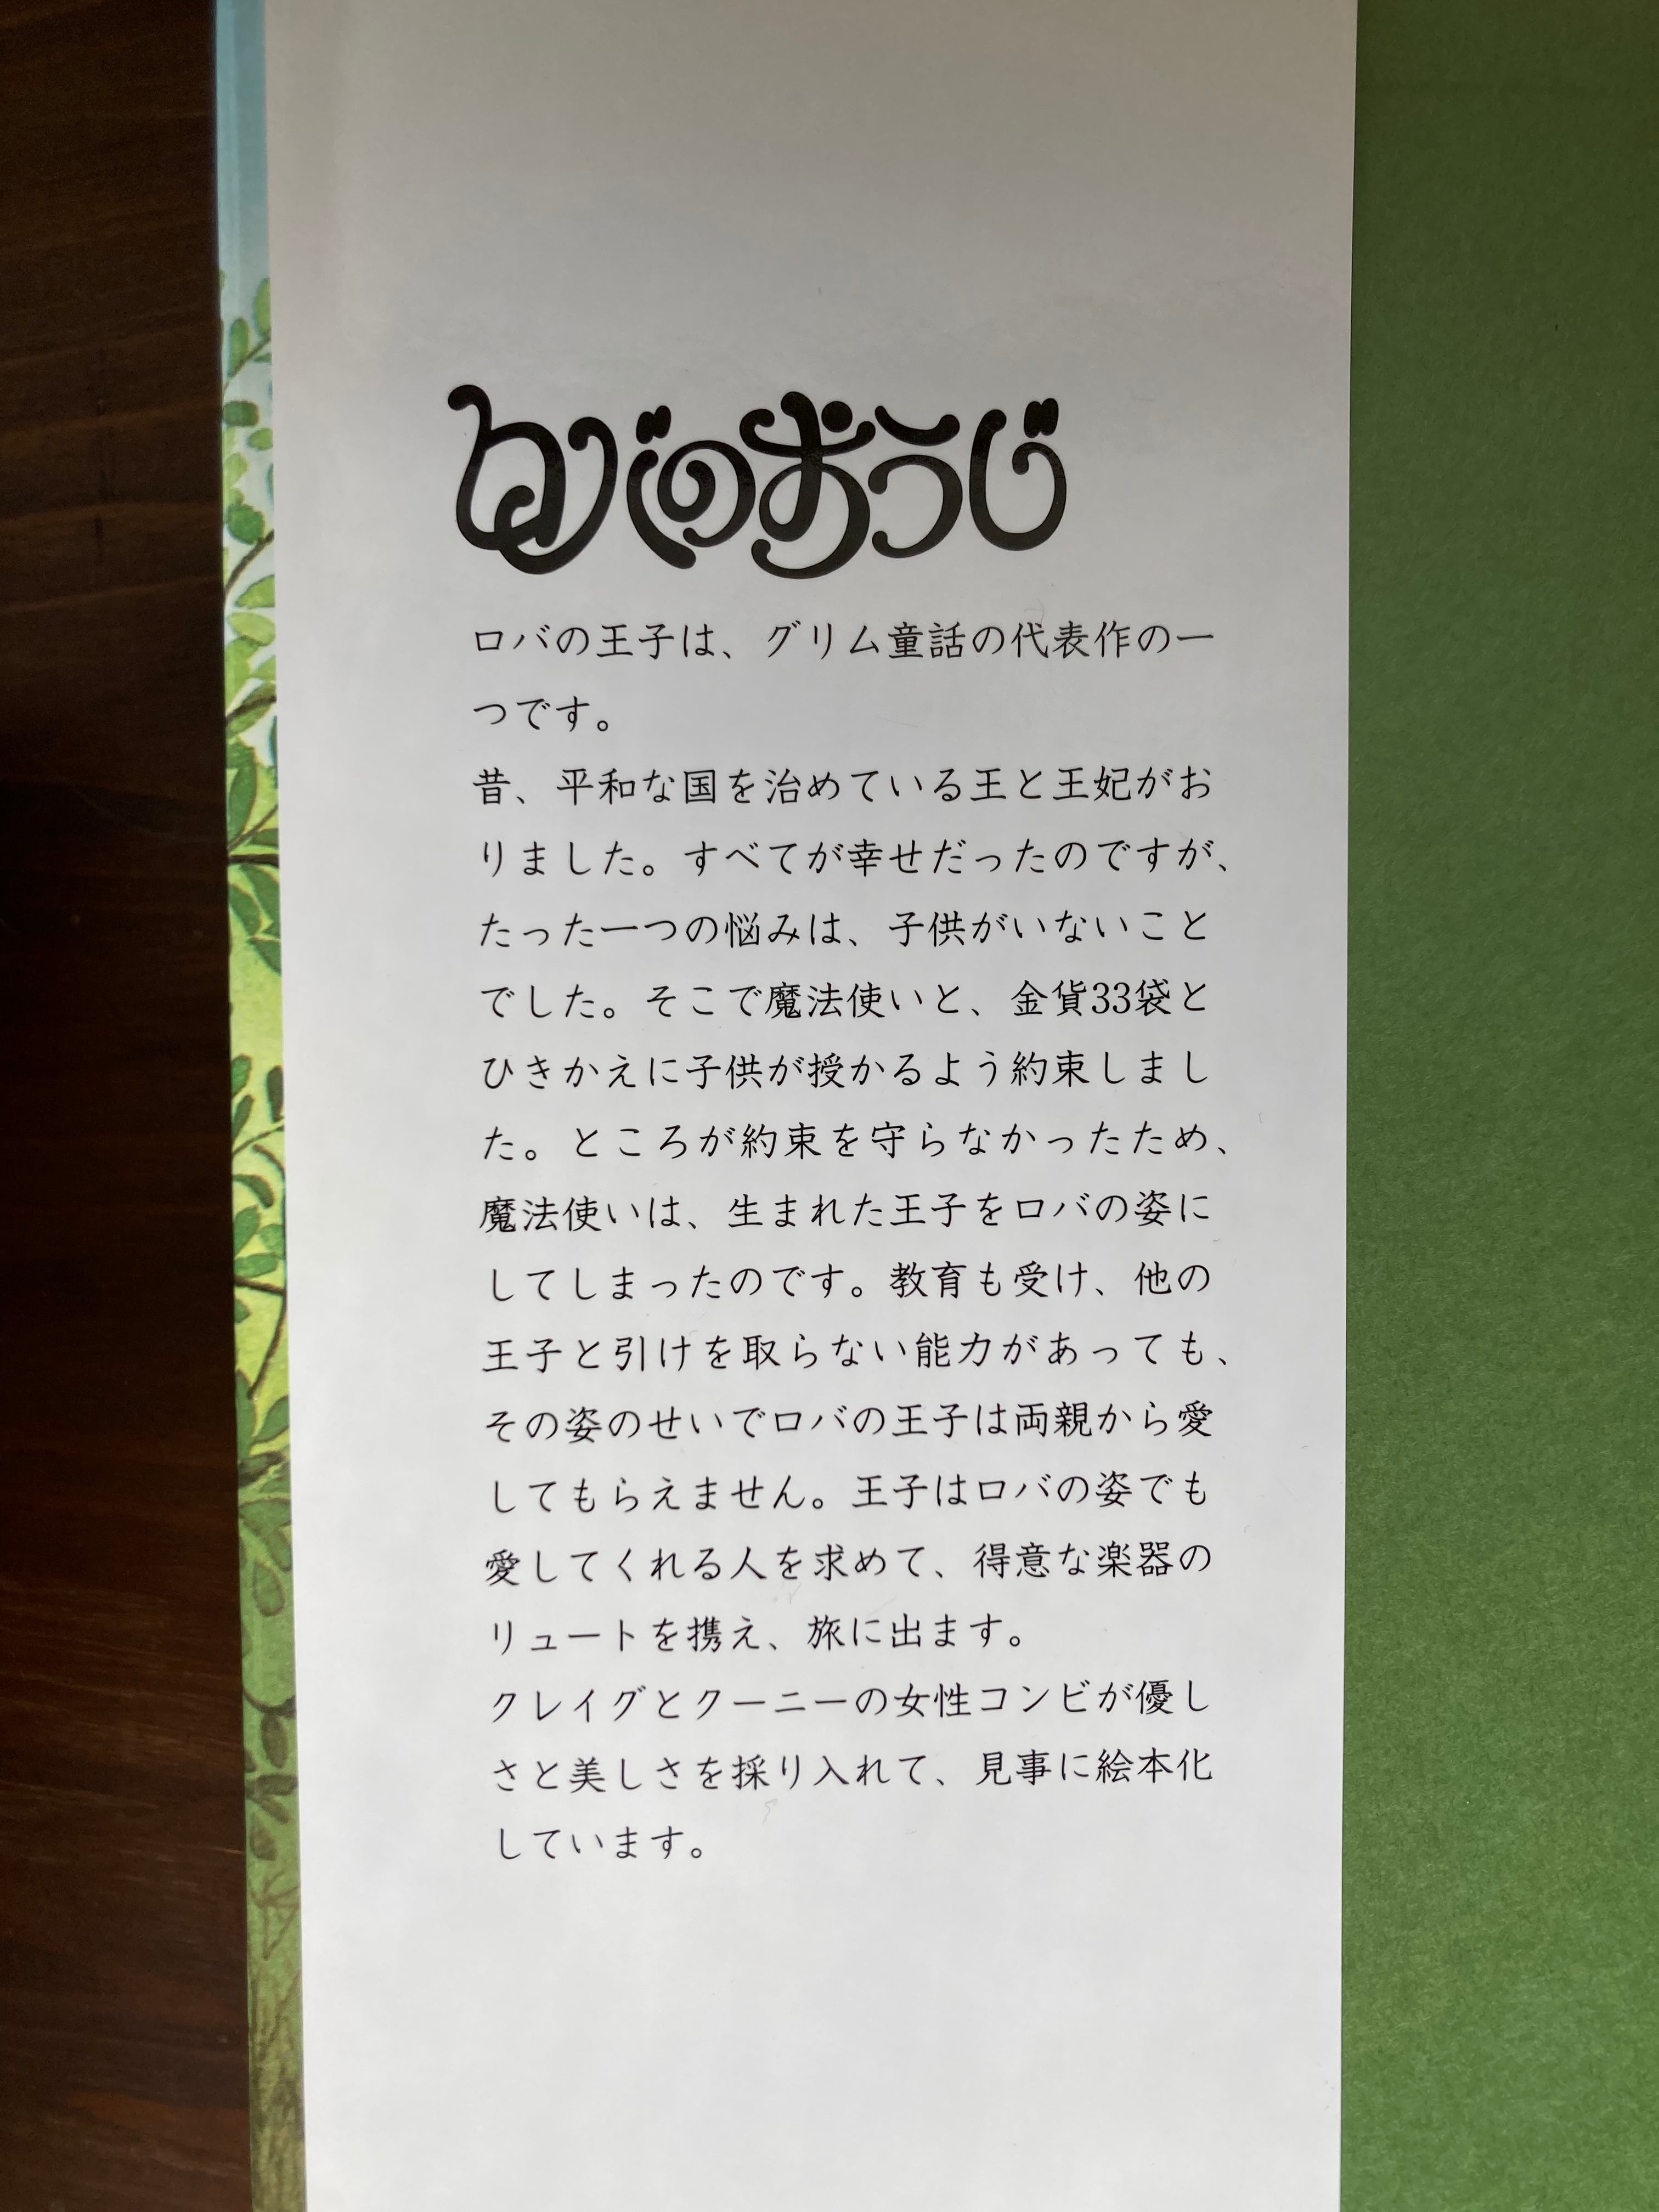 ロバのおうじ
ロバの王子は、グリム童話の代表作の一
つです。
昔、平和な国を治めている王と王妃がお
りました。すべてが幸せだったのですが、
たった一つの悩みは、子供がいないこと
でした。そこで魔法使いと、金貨33袋と
ひきかえに子供が授かるよう約束しまし
た。ところが約束を守らなかったため、
魔法使いは、生まれた王子をロバの姿に
してしまったのです。教育も受け、他の
王子と引けを取らない能力があっても、
その姿のせいでロバの王子は両親から愛
してもらえません。王子はロバの姿でも
愛してくれる人を求めて、得意な楽器の
リュートを携え、旅に出ます。
クレイグとクーニーの女性コンビが優し
さと美しさを採り入れて、見事に絵本化
しています。